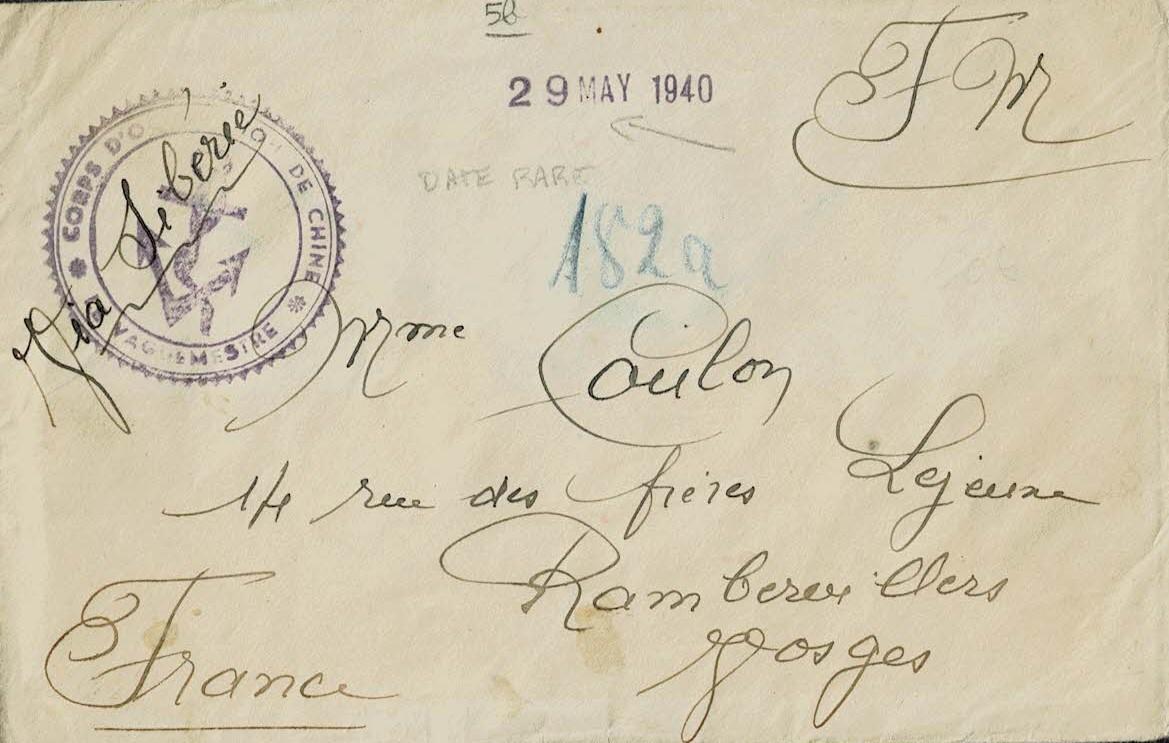 56
29 MAY 1940
F M
DATE RARE
182a
CORPS D'O ION DE CHINE
VAGUEMESTRE
Via Siberie
Mme Coulon
14 rue des frères Lejeune
Rambervillers
Vosges
France